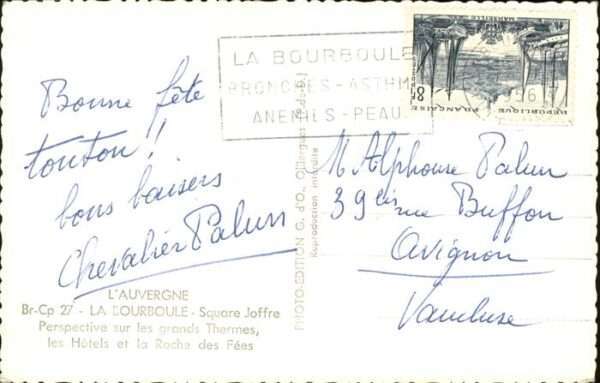 Bonne fête
tonton !!
bons baisers
Chevalier Palun
L'AUVERGNE
Br-Cp 27 - LA BOURBOULE - Square Joffre
Perspective sur les grands Thermes,
les Hôtels et la Roche des Fées
PHOTO-EDITION G. d'O.,
Reproduction interdite
LA BOURBOULE
BRONCHES - ASTHM
ANEMIES - PEAU
8F
REPUBLIQUE FRANÇAISE
MARSEILLE
M Alphonse Palun
39 rue Buffon
Avignon
Vaucluse